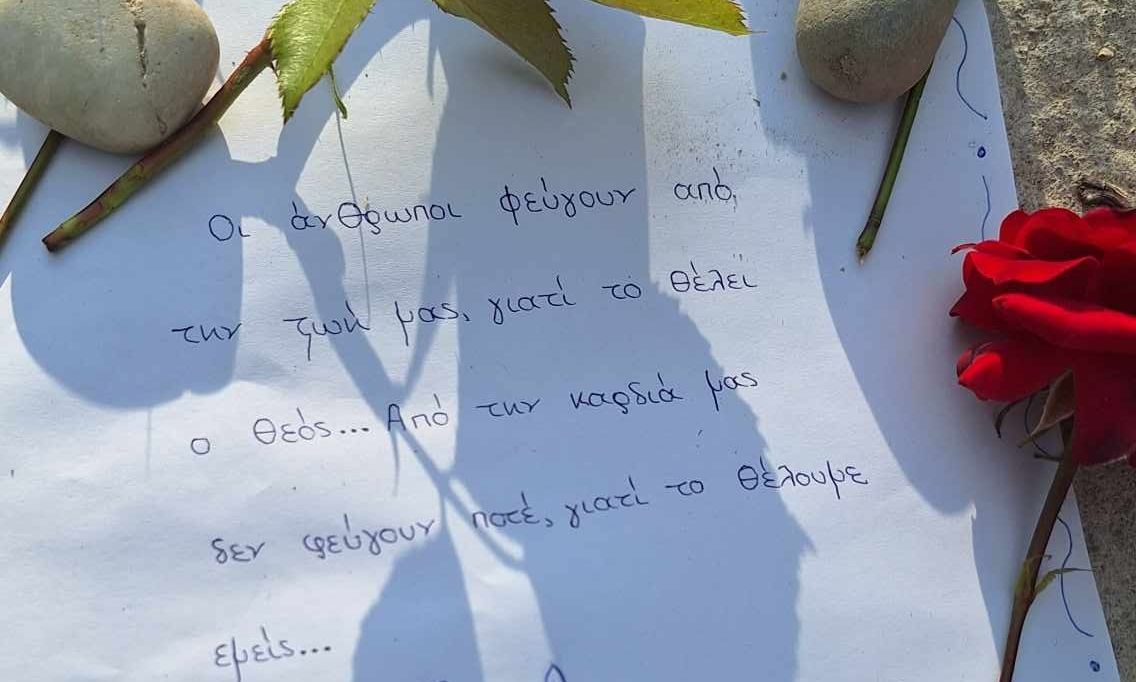 Οι άνθρωποι φεύγουν από,
την ζωή μας, γιατί το θέλει
ο Θεός... Από την καρδιά μας
δεν φεύγουν ποτέ, γιατί το θέλουμε
εμείς...